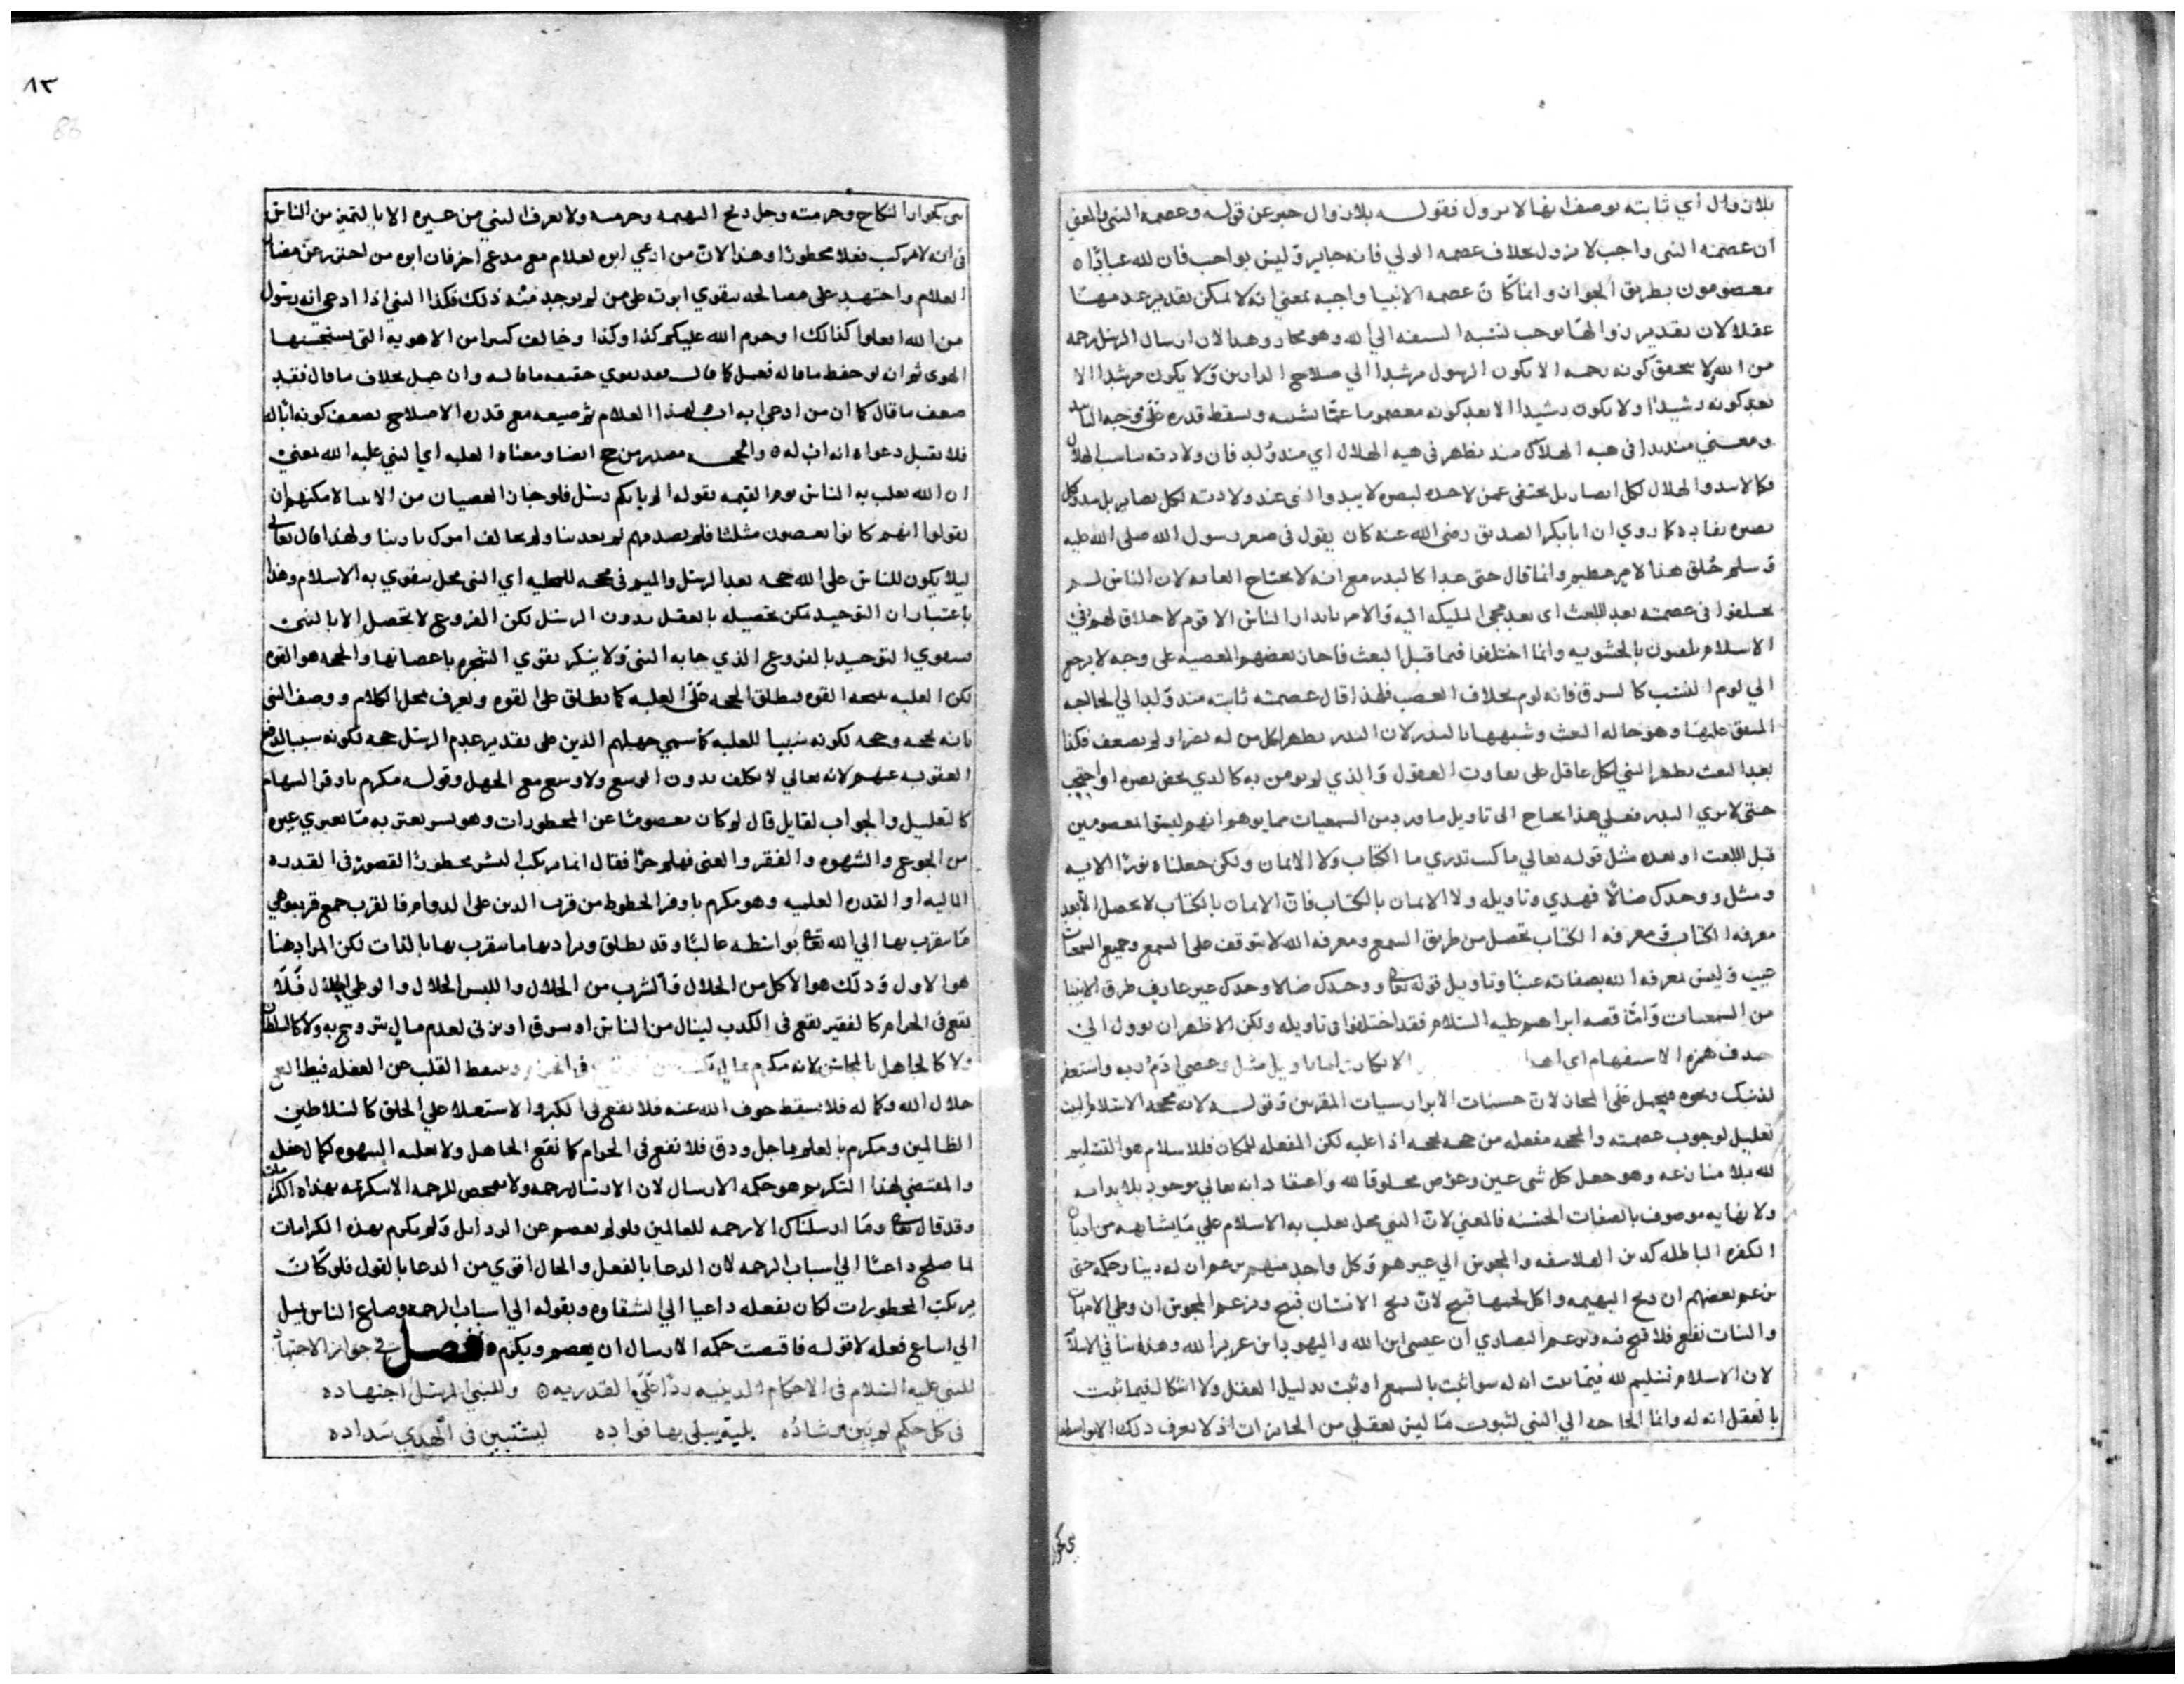 بلا زوال أي ثابته بوصف انها لا تزول فقوله بلا زوال خبر عن قوله وعصمه النبي والمعني
ان عصمته النبي واجب لا تزول بخلاف عصمه الولي فانه جايز وليس بواجب فان لله عبادًا
معصومون بطريق الجواز وانما كان عصمه الانبيا واجبه بمعني انه لا يمكن تقدير عدمها
عقلا لان تقدير زوالها يوجب نسبه السفه الي الله وهو محال وهذا لان ارسال الرسل رحمه
من الله ولا يتحقق كونه رحمه الا بكون الرسول مرشدا الي صلاح الدارين ولا يكون مرشدا الا
بعد كونه رشيدا ولا يكون رشيدا الا بعد كونه معصوما عما يشينه ويسقط قدره
ومعني منذ بدا في هيه الهلال منذ ظهر في هيه الهلال اي منذ ولد فان ولادته
فكما لا يبدوا الهلال لكل ابصار بل يختفي عمن لا حده لبصره لا يبدوا النبي عند ولادته لكل بصاير بل يبدو لكل
بصيره كما روي ان ابا بكر الصديق رضي الله عنه كان يقول في صغر رسول الله صلى الله عليه
وسلم خلق هذا لامر عظيم وانما قال حتى غدا كالبدر مع انه لا يحتاج الغايه لان الناس لم
يختلفوا في عصمته بعد البعث اي بعد مجي المليكه اليه والامر بانذار الناس الا قوم لا خلاق لهم في
الاسلام يلقبون بالحشويه وانما اختلفوا فيما قبل البعث فاجاز بعضهم المعصيه على وجه لا يرجع
الي لوم النسب كالسرق فانه لوم بخلاف الغصب فلهذا قال عصمته ثابته منذ ولد الي الحالة
المتفق عليها وهو حاله البعث وشبهها بالبدر لان البدر يظهر لكل من له بصر ولو بضعف فكذا
بعد البعث يظهر النبي لكل عاقل على تفاوت العقول والذي لو يومن به كالذي غض بصره او احتجب
حتى لا يري البدر فعلي هذا يحتاج الى تاويل ما ورد من السمعيات مما يوهم انهم ليسوا معصومين
قبل البعث او بعده مثل قوله تعالي ما كنت تدري ما الكتاب ولا الايمان ولكن جعلناه نورا الايه
ومثل ووجدك ضالًا فهدي وتاويله ولا الايمان بالكتاب فان الايمان بالكتاب لا يحصل الا بعد
معرفه الكتاب ومعرفه الكتاب تحصل من طريق السمع ومعرفه الله لا يتوقف على السمع وجميع السمعيات
غيب وليس معرفه الله بصفاته غيبا وتاويل قوله تعالى ووجدك ضالا وجدك غير عارف طرق الانبيا
من السمعيات وأما قصه ابراهيم عليه السلام فقد اختلفوا في تاويله ولكن الاظهر ان يوول الي
حذف همزه الاستفهام اي اهذا الانكار بتاويل مثل وعصي ادم ربه واستغفر
لذنبك ونحوه فيحمل على المجاز لان حسنات الابرار سيات المقربين وقوله لانه محجه الاسلام البيت
تعليل لوجوب عصمته والمحجه مفعله من حجه يحجه اذا غلبه لكن المفعله للمكان فللاسلام هو التسليم
لله بلا منازعه وهو جعل كل شي عين وعرض مخلوقا لله واعتقاد انه تعالي موجود بلا بدايه
ولا نهايه موصوف بالصفات الحسنه فالمعني لان النبي محل يغلب به الاسلام علي ما يشابهه من اديان
الكفره الباطله كدين الفلاسفه والمجوس الي غيرهم وكل واحد منهم يزعم ان له دينا وحكمه حتى
يزعم بعضهم ان ذبح البهيمه واكل لحمها قبيح لان ذبح الانسان قبيح ويزعم المجوس ان وطي الامهات
والبنات نفع فلا قبح فيه ويزعم النصاري ان عيسى ابن الله واليهود بان عزير الله وهذا ينافي الاسلام
لان الاسلام تسليم لله فيما ثبت انه له سوا ثبت بالسمع او ثبت بدليل العقل ولا اشكال فيما ثبت
بالعقل انه له وانما الحاجه الي النبي لثبوت ما ليس بعقلي من الجايزات اذ لا يعرف ذلك الا بواسطه
نبي كجواز
٨٣
86
نبي كجواز النكاح وحرمته وحل ذبح البهيمه وحرمته ولا يعرف النبي من غيره الا بالتميز من الناس
في انه لا يركب فعلا محظورًا وهذا لان من ادعي ابوه لغلام مع مدعي اخر فان ابوه من احترز عن مضار
الغلام واجتهد على مصالحه يقوي ابوته على من لم يوجد منه ذلك فكذا النبي اذا ادعي انه رسول
من الله افعلوا كذا لك او حرم الله عليكم كذا وكذا وخالف كثيرا من الاهويه التي يستحسنها
الهوى ثم انه لو حفظ ما قاله ففعل كما قال بعد يقوي حقيقه ما قاله وان فعل بخلاف ما قال فقد
ضعف ما قال كما ان من ادعي انه اب لهذا الغلام ثم ضيعه مع قدره الاصلاح يضعف كونه ابًا له
فلا يقبل دعواه انه اب له والمحجه مصدر من حج ايضا ومعناه الغلبه اي النبي غلبه الله بمعنى
ان الله يغلب به الناس يوم القيمه بقوله الم ياتكم رسل فلو جاز العصيان من الانبيا لامكنهم ان
يقولوا انهم كانوا يعصون مثلنا فلم تعذبهم لم تعذبنا ولم نخالف امرك يا ربنا ولهذا قال تعالى
ليلا يكون للناس على الله حجه بعد الرسل والميم في محجه للمحليه اي النبي محل يقوي به الاسلام وهذا
باعتبار ان التوحيد يمكن تحصيله بالعقل بدون الرسل لكن الفروع لا تحصل الا بالنبي
فيقوي التوحيد بالفروع الذي جا به النبي ولا ينكر تقوي الشجر باغصانها والحجه هو القوه
لكن الغلبه نتيجه القوه فيطلق الحجه على الغلبه كما يطلق على القوه ويعرف بمحل الكلام ووصف النبي
بانه محجه وحجه لكونه سببا للغلبه كما سمي جهلهم الدين على تقدير عدم الرسل حجه لكونه سببا لدفع
العقوبه عنهم لانه تعالي لا يكلف بدون الوسع ولا وسع مع الجهل وقوله مكرم باوفر السهام
كالتعليل والجواب لقايل قال لو كان معصوما عن المحظورات وهو بشر يعتريه ما يعتري غيره
من الجوع والشهوه والفقر والغنى فهلم جرا فقال انما يركب البشر محظورًا لقصور في القدره
الماليه او القدره العلميه وهو مكرم باوفر الحظوظ من قرب الدين على الدوام فالقرب جمع قربه وهي
ما يتقرب بها الي الله تعالى بواسطه غالبا وقد يطلق ويراد بها ما يتقرب بها بالذات لكن المراد هنا
هو الاول وذلك هو الاكل من الحلال والشرب من الحلال واللبس الحلال والوطي الحلال فلا
يقع في الحرام كالفقير يقع في الكذب لينال من الناس او سرق او زنى لعدم مال يتزوج به ولا كالسلطان
ولا كالجاهل لانه مكرم في الحرام ويسقط القلب عن الغفله فيطالع
جلال الله وكماله فلا يسقط خوف الله عنه فلا يقع في الكبر والاستعلا على الخلق كالسلاطين
الظالمين ومكرم بالعلم بما جل ودق فلا يقع في الحرام كما يقع الجاهل ولا تغلبه الشهوه كما
والمقتضي لهذا التكريم هو حكمه الارسال لان الارسال رحمه ولا يتمحض الرحمه الا بتكريمه بهذه الكرامات
وقد قال تعالى وما ارسلناك الا رحمه للعالمين ولو لم يعصم عن الرذايل ولم يكرم بهذه الكرامات
لما صلح داعيًا الي اسباب الرحمه لان الدعا بالفعل والحال اقوي من الدعا بالقول فلو كان
يرتكب المحظورات لكان بفعله داعيا الي الشقاوه وبقوله الي اسباب الرحمه وطباع الناس تميل
الي اتباع فعله لا قوله فاقتضت حكمه الارسال ان يعصم ويكرم فصل في جواز الاجتهاد
للنبي عليه السلام في الاحكام الدينيه ردًا على القدريه وللنبي المرسل اجتهاده
في كل حكم لم يبن رشاده بلية يبلى بها فواده ليستبين في الهدي سداده